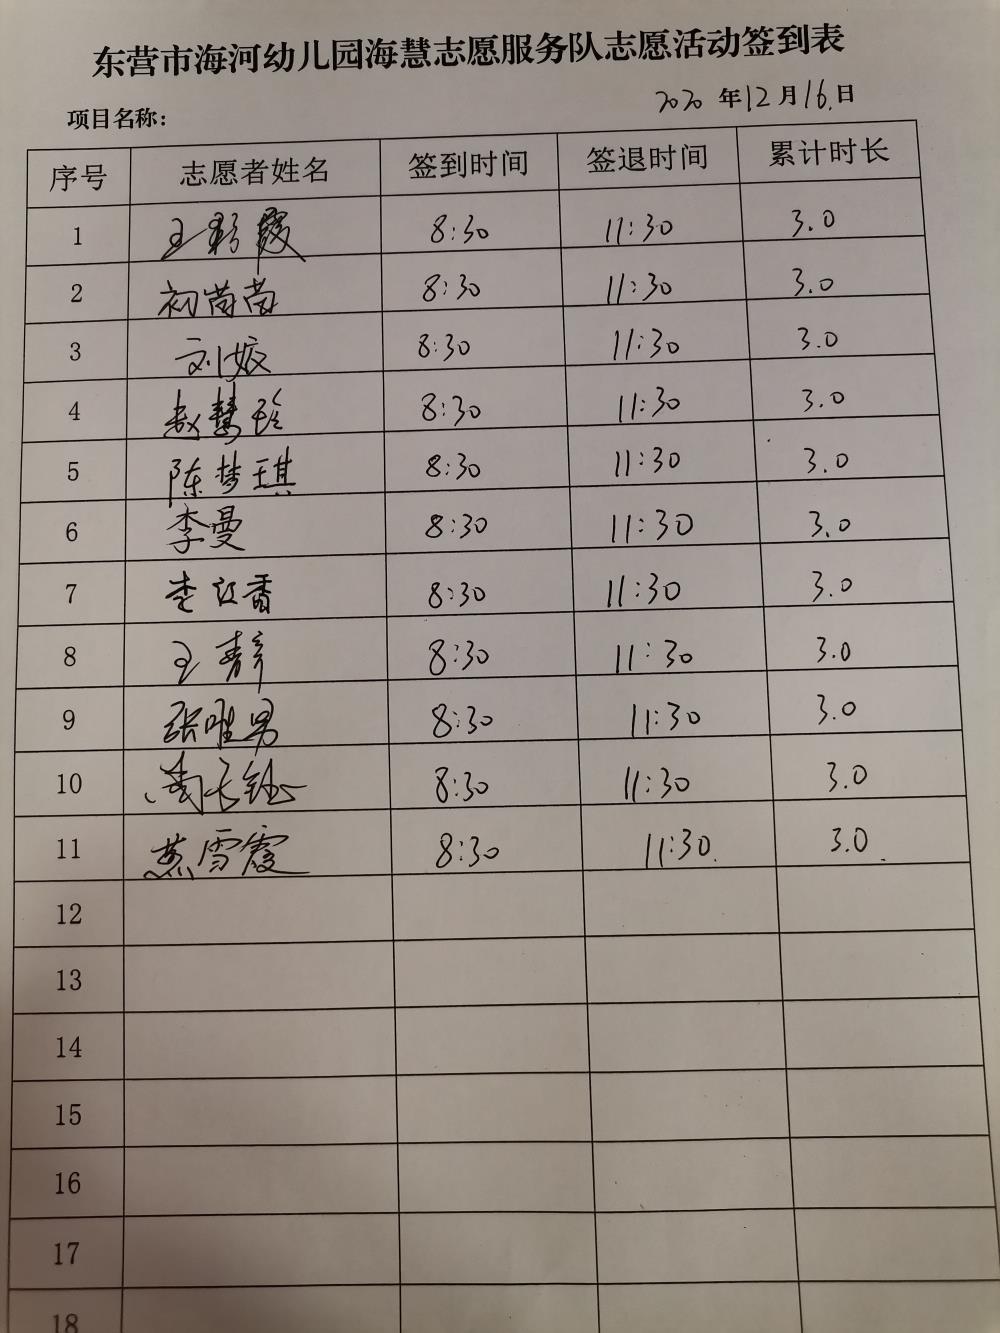 东营市海河幼儿园海慧志愿服务队志愿活动签到表
项目名称: 2020 年12月16.日
序号 志愿者姓名 签到时间 签退时间 累计时长
1 王彩霞 8:30 11:30 3.0
2 初苗苗 8:30 11:30 3.0
3 刘姣 8:30 11:30 3.0
4 赵慧珍 8:30 11:30 3.0
5 陈梦琪 8:30 11:30 3.0
6 李曼 8:30 11:30 3.0
7 李红香 8:30 11:30 3.0
8 王静 8:30 11:30 3.0
9 张唯男 8:30 11:30 3.0
10 8:30 11:30 3.0
11 燕雪霞 8:30 11:30 3.0
12
13
14
15
16
17
18